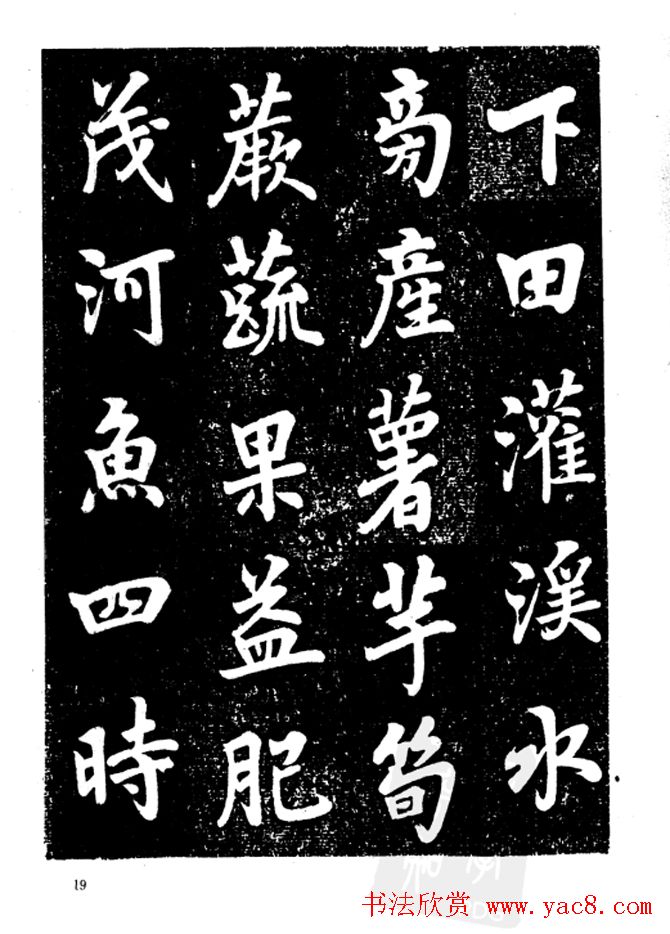 下田灌溪水
旁產薯芋筍
蕨蔬果益肥
茂河魚四時
19
书法欣赏 www.yac8.com